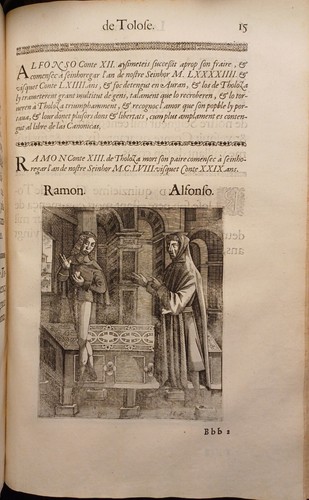 de Tolose. 15
ALFONSO Conte XII. aysimeteis succesit aprop son fraire, &
comensec à seinhoregar l'an de nostre Seinhor M. LXXXXIIII. &
visquet Conte LIIII. ans, & foc detengut en Auran, & los de Tholoza
ly trameteren grant multitut de gens, talament que lo recrobéren, & lo tor-
neren à Tholoza triumphamment, & recognoc l'amor que son pobble ly por-
tava, & lour donec plusors dons & libertats, cum plus amplament es conten-
gut al libre de las Canonicas.
RAMON Conte XIII. de Tholoza mort son paire comensèc à seinho-
regar l'an de nostre Seinhor M.C.LVIII. visquet Conte XXIX. ans.
Ramon. Alfonso.
Bbb 2